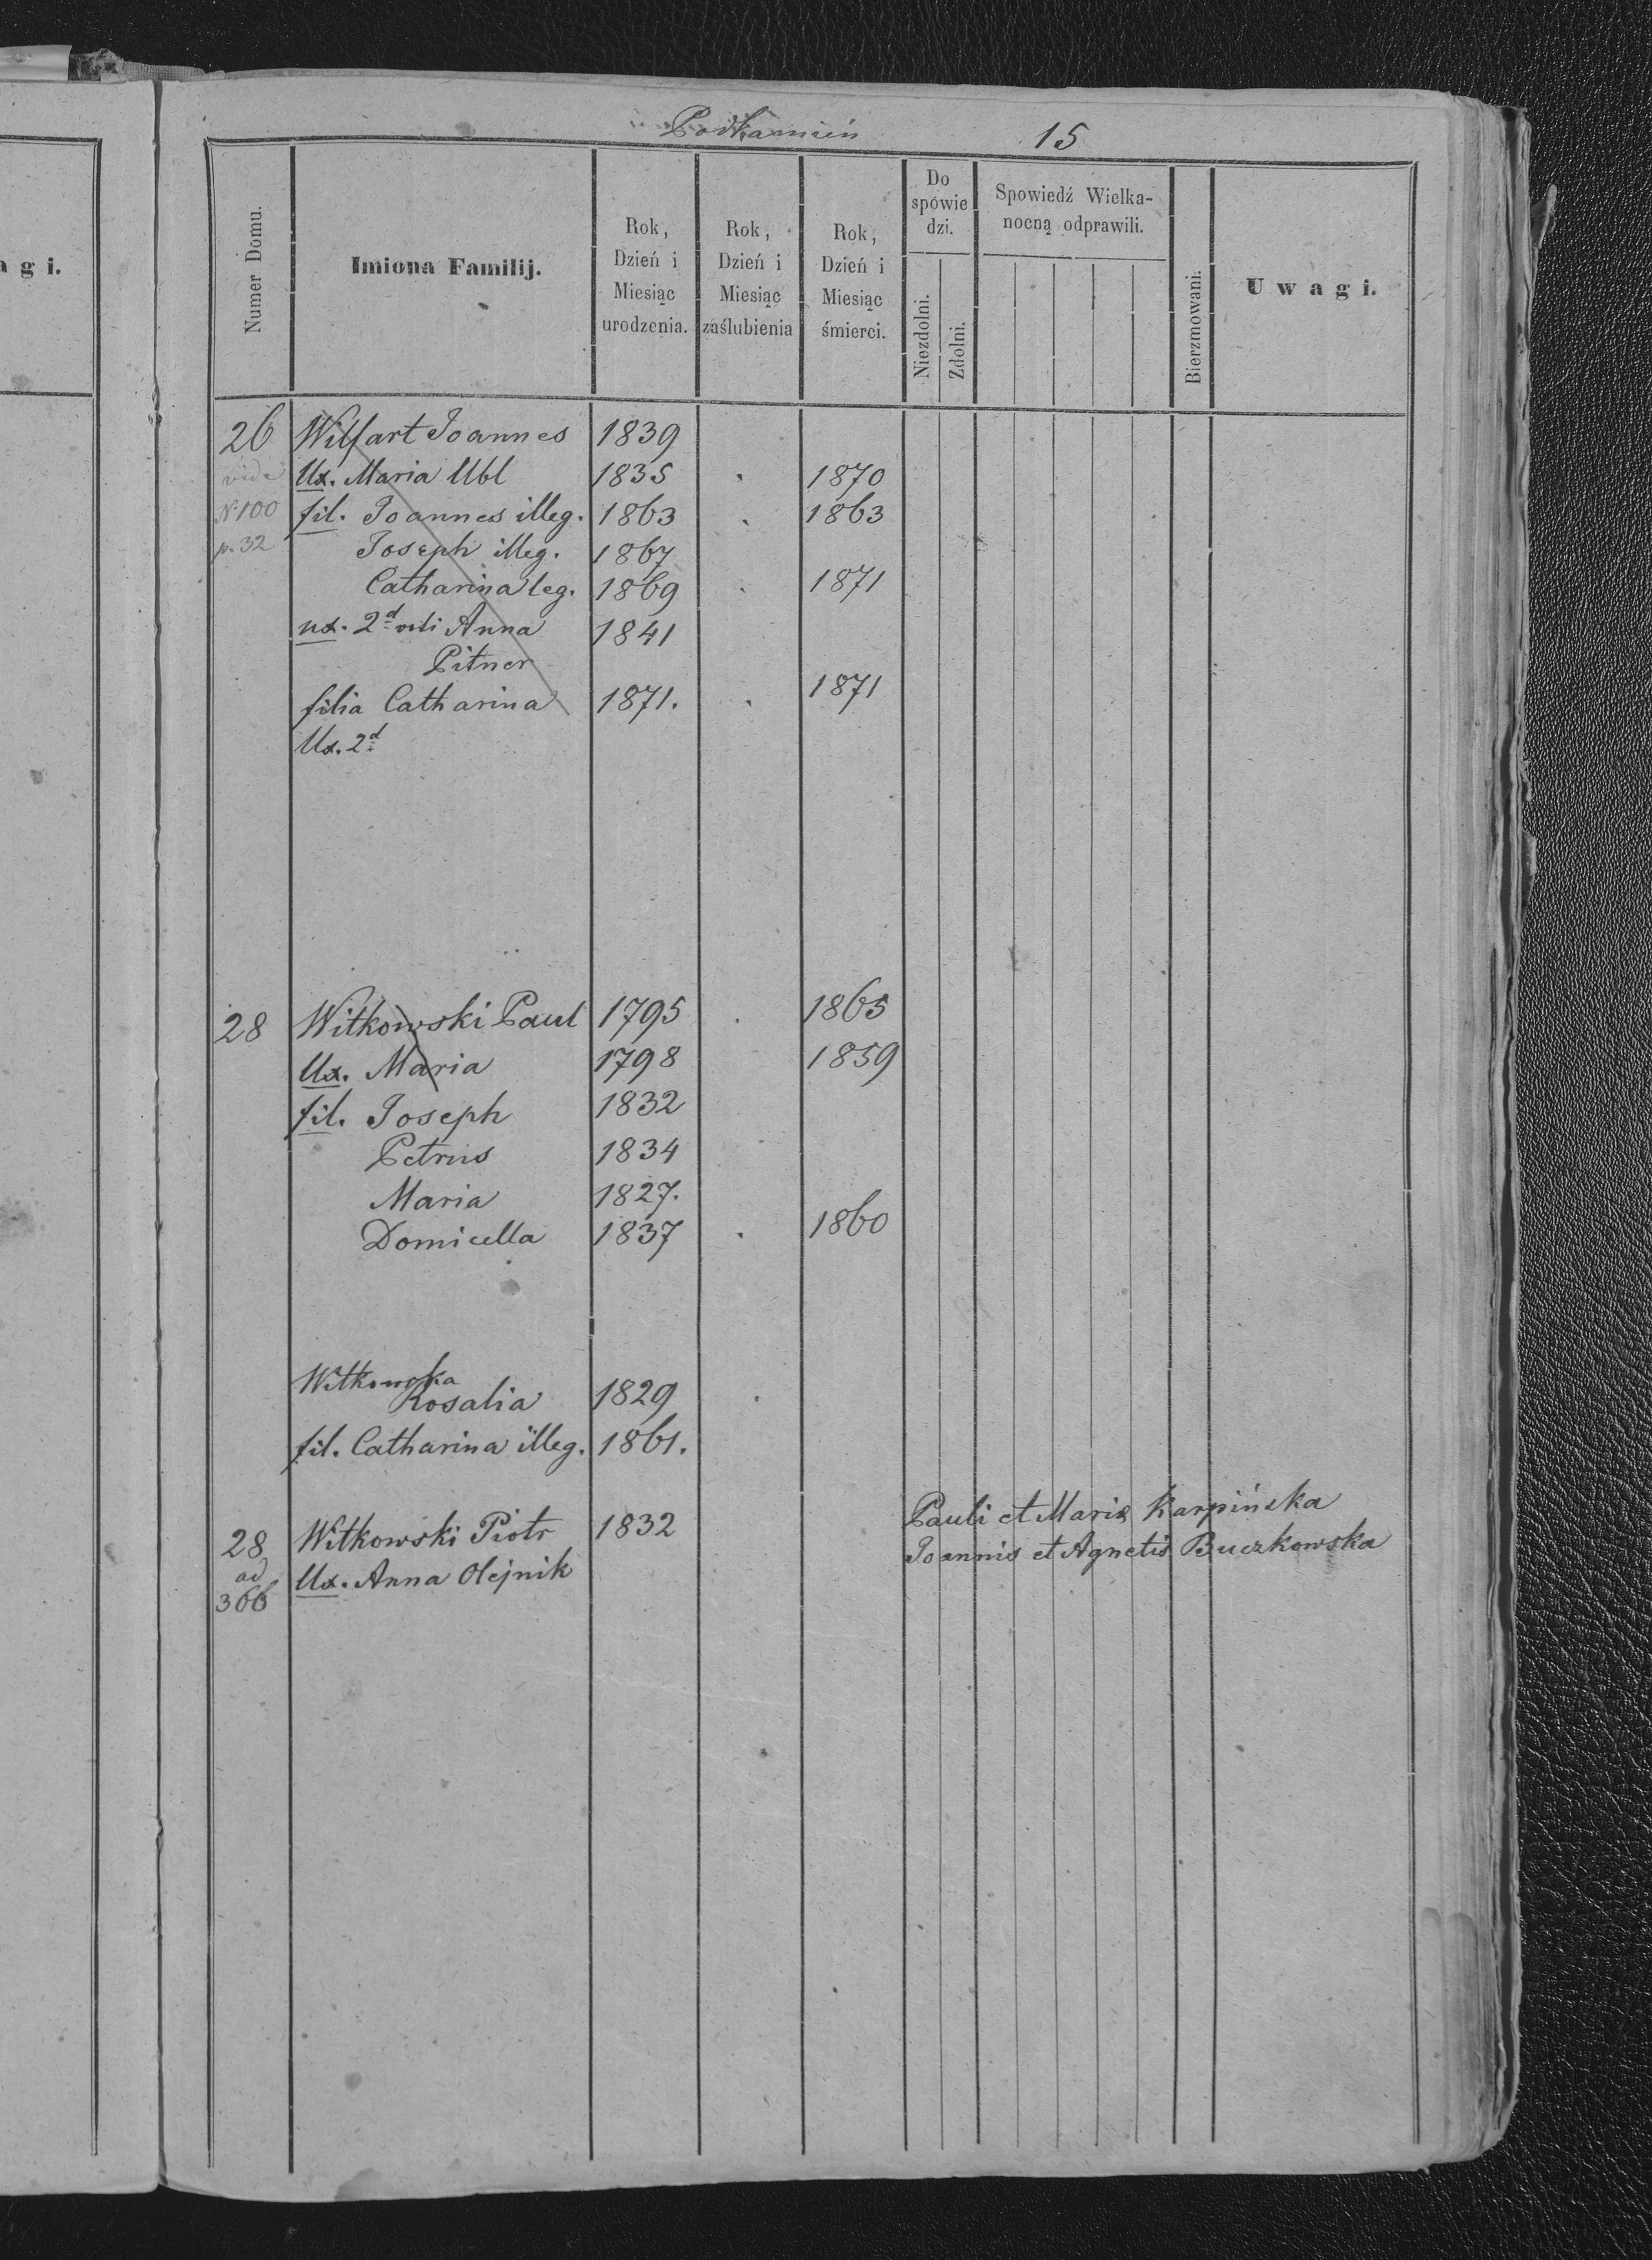 Podkamień 15
a g i.
Numer Domu.
Imiona Familij.
Rok, Dzień i Miesiąc urodzenia.
Rok, Dzień i Miesiąc zaślubienia
Rok, Dzień i Miesiąc śmierci.
Do spowie dzi.
Niezdolni.
Zdolni.
Spowiedź Wielka-
nocną odprawili.
Bierzmowani.
U w a g i.
26 Wilfart Joannes 1839
vide Ux. Maria Ubl 1835 1870
N 100 fil. Joannes illeg. 1863 1863
p. 32 Joseph illeg. 1867
Catharina leg. 1869 1871
ux. 2d voti Anna 1841
Pitner
filia Catharina 1871. 1871
Ux. 2d
28 Witkowski Paul 1795 1865
Ux. Maria 1798 1859
fil. Joseph 1832
Petrus 1834
Maria 1827.
Domicella 1837 1860
Witkowska
Rosalia 1829
fil. Catharina illeg. 1861.
28 Witkowski Piotr 1832 Pauli et Maria Karpińska
ad Ux. Anna Olejnik Joannis et Agnetis Buczkowska
366